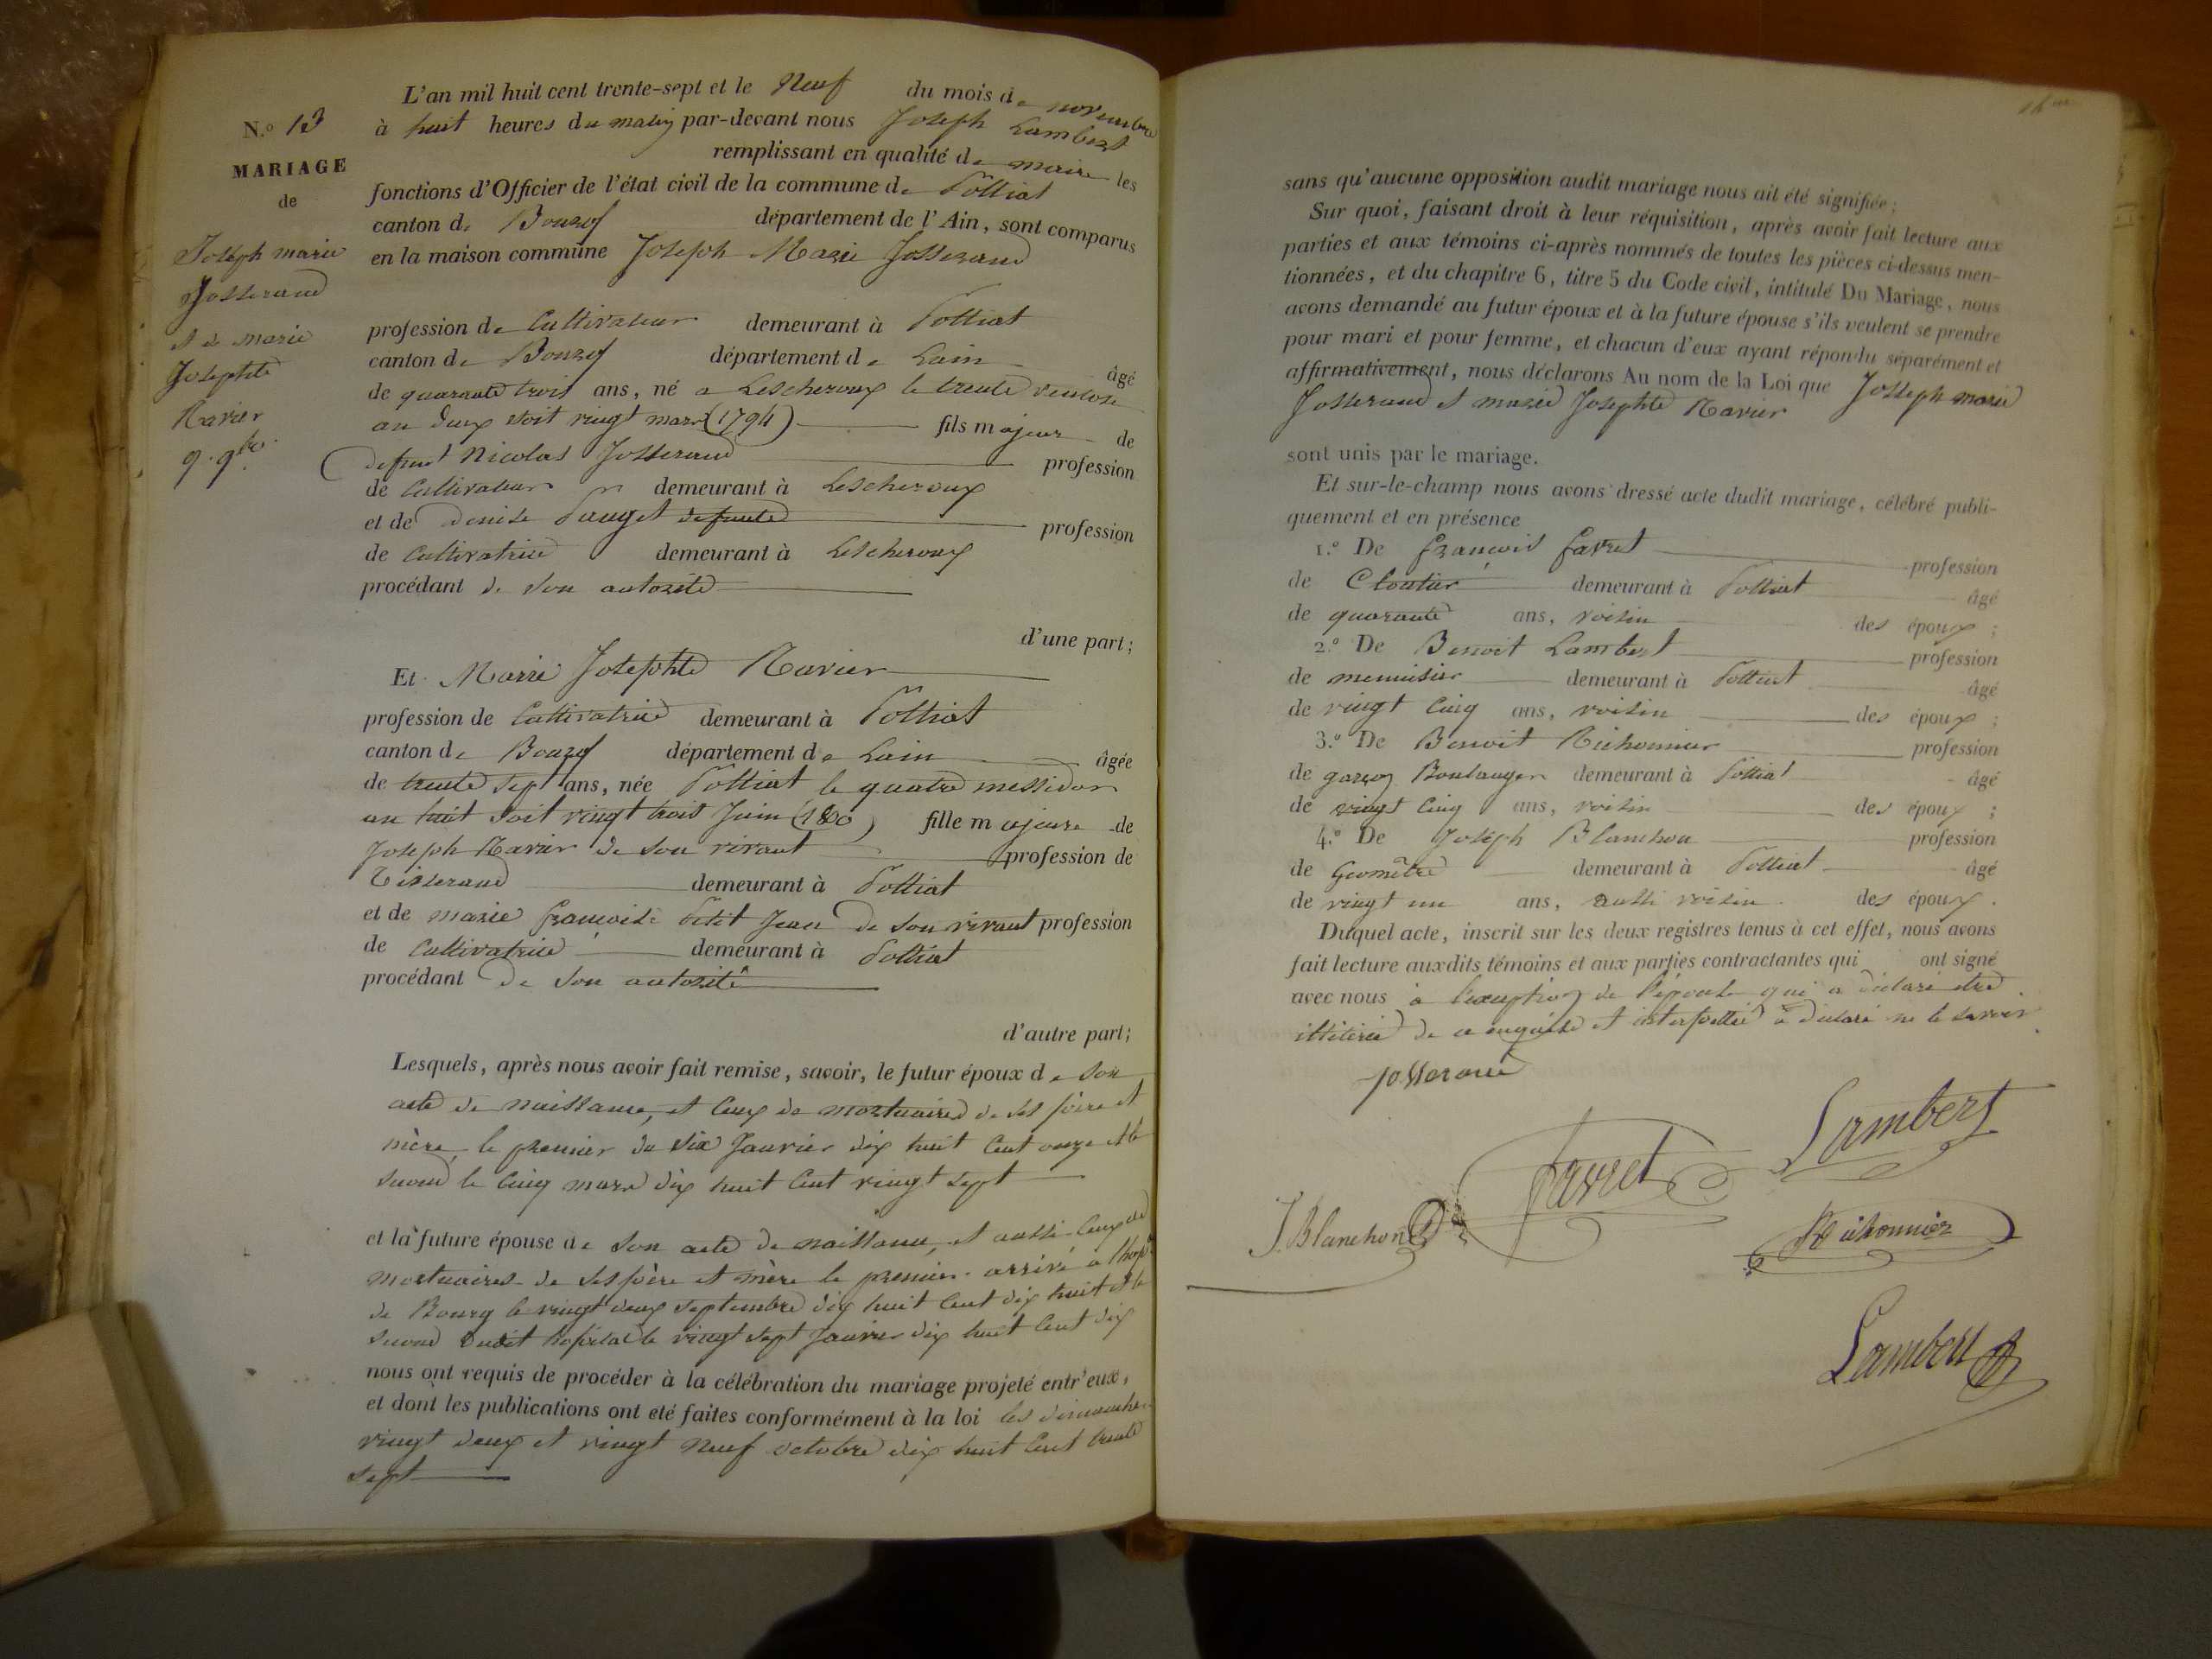 N.o 13
MARIAGE
de
Joseph marie
Josserand
et de marie
Josephte
Ravier
9. 9bre.
L'an mil huit cent trente-sept et le Neuf du mois de novembre
à huit heures du matin par-devant nous Joseph Lambert
remplissant en qualité de maire les
fonctions d'Officier de l'état civil de la commune de Polliat
canton de Bourg département de l'Ain, sont comparus
en la maison commune Joseph Marie Josserand
profession de Cultivateur demeurant à Polliat
canton de Bourg département de Lain âgé
de quarante trois ans, né a Lescheroux le trente ventose
an deux soit vingt mars (1794) fils majeur de
defunt Nicolas Josserand profession
de Cultivateur demeurant à Lescheroux
et de Denise Pauget defunte profession
de Cultivatrice demeurant à Lescheroux
procédant de son autorité
d'une part;
Et Marie Josephte Ravier
profession de Cultivatrice demeurant à Polliat
canton de Bourg département de Lain âgée
de trente sept ans, née Polliat le quatre messidor
an huit soit vingt trois Juin (1800) fille majeure de
Joseph Ravier de son vivant profession de
Tisserand demeurant à Polliat
et de marie françoise Petit Jean de son vivant profession
de Cultivatrice demeurant à Polliat
procédant de son autorité
d'autre part;
Lesquels, après nous avoir fait remise, savoir, le futur époux de son
acte de naissance, et ceux de mortuaires de ses père et
mère, le premier du six Janvier dix huit cent onze et le
second le cinq mars dix huit cent vingt sept
et la future épouse de son acte de naissance, et aussi ceux de
mortuaires de ses père et mère le premier arrivé a
de Bourg le vingt deux septembre dix huit cent dix huit et le
second dudit hopital le vingt sept Janvier dix huit cent dix
nous ont requis de procéder à la célébration du mariage projeté entr'eux,
et dont les publications ont été faites conformément à la loi les dimanches
vingt deux et vingt neuf octobre dix huit cent trente
sept
sans qu'aucune opposition audit mariage nous ait été signifiée;
Sur quoi, faisant droit à leur réquisition, après avoir fait lecture aux
parties et aux témoins ci-après nommés de toutes les pièces ci-dessus men-
tionnées, et du chapitre 6, titre 5 du Code civil, intitulé Du Mariage, nous
avons demandé au futur époux et à la future épouse s'ils veulent se prendre
pour mari et pour femme, et chacun d'eux ayant répondu séparément et
affirmativement, nous déclarons Au nom de la Loi que Joseph marie
Josserand et marie Josephte Ravier
sont unis par le mariage.
Et sur-le-champ nous avons dressé acte dudit mariage, célébré publi-
quement et en présence
1.o De françois favret profession
de Cloutier demeurant à Polliat âgé
de quarante ans, voisin des époux;
2.o De Benoit Lambert profession
de menuisier demeurant à Polliat âgé
de vingt cinq ans, voisin des époux;
3.o De Benoit Richonnier profession
de garçon Boulanger demeurant à Polliat âgé
de vingt cinq ans, voisin des époux;
4.o De Joseph Blanchon profession
de Géomètre demeurant à Polliat âgé
de vingt un ans, aussi voisin des époux.
Duquel acte, inscrit sur les deux registres tenus à cet effet, nous avons
fait lecture auxdits témoins et aux parties contractantes qui ont signé
avec nous à l'exception de l'épouse qui a déclaré etre
illitérée de ce enquise et interpellée a déclaré ne le savoir
Josserand
Lambert
favret
J. Blanchon
Richonnier
Lambert